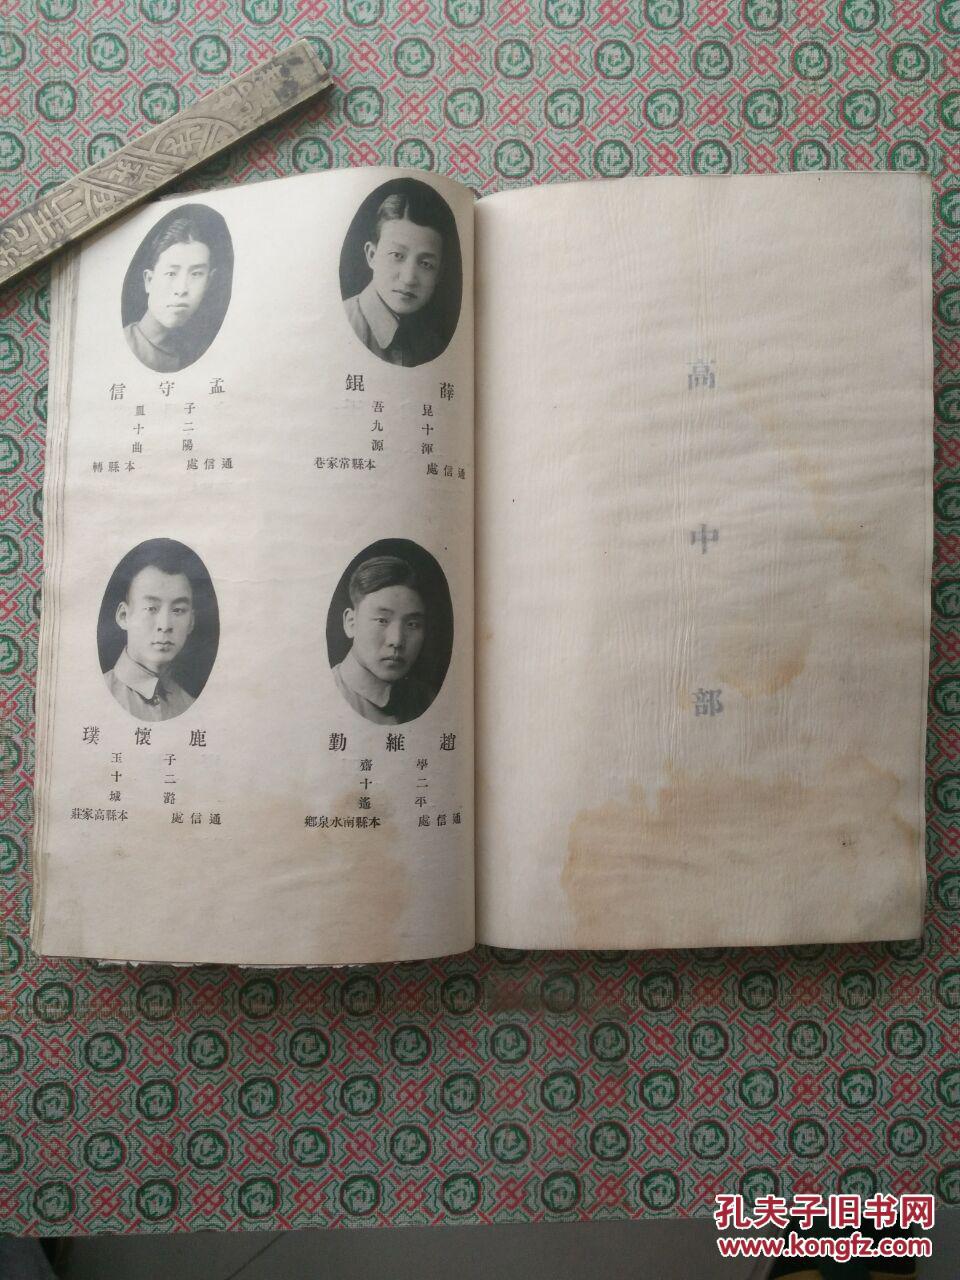 薛錕
昆吾
十九
渾源
通信處 本縣常家巷
孟守信
子
二十
陽曲
通信處 本縣轉
趙維勤
學齋
二十
平遙
通信處 本縣南水泉鄉
鹿懷璞
子玉
二十
潞城
通信處 本縣高家莊
高中部
孔夫子旧书网
www.kongfz.com